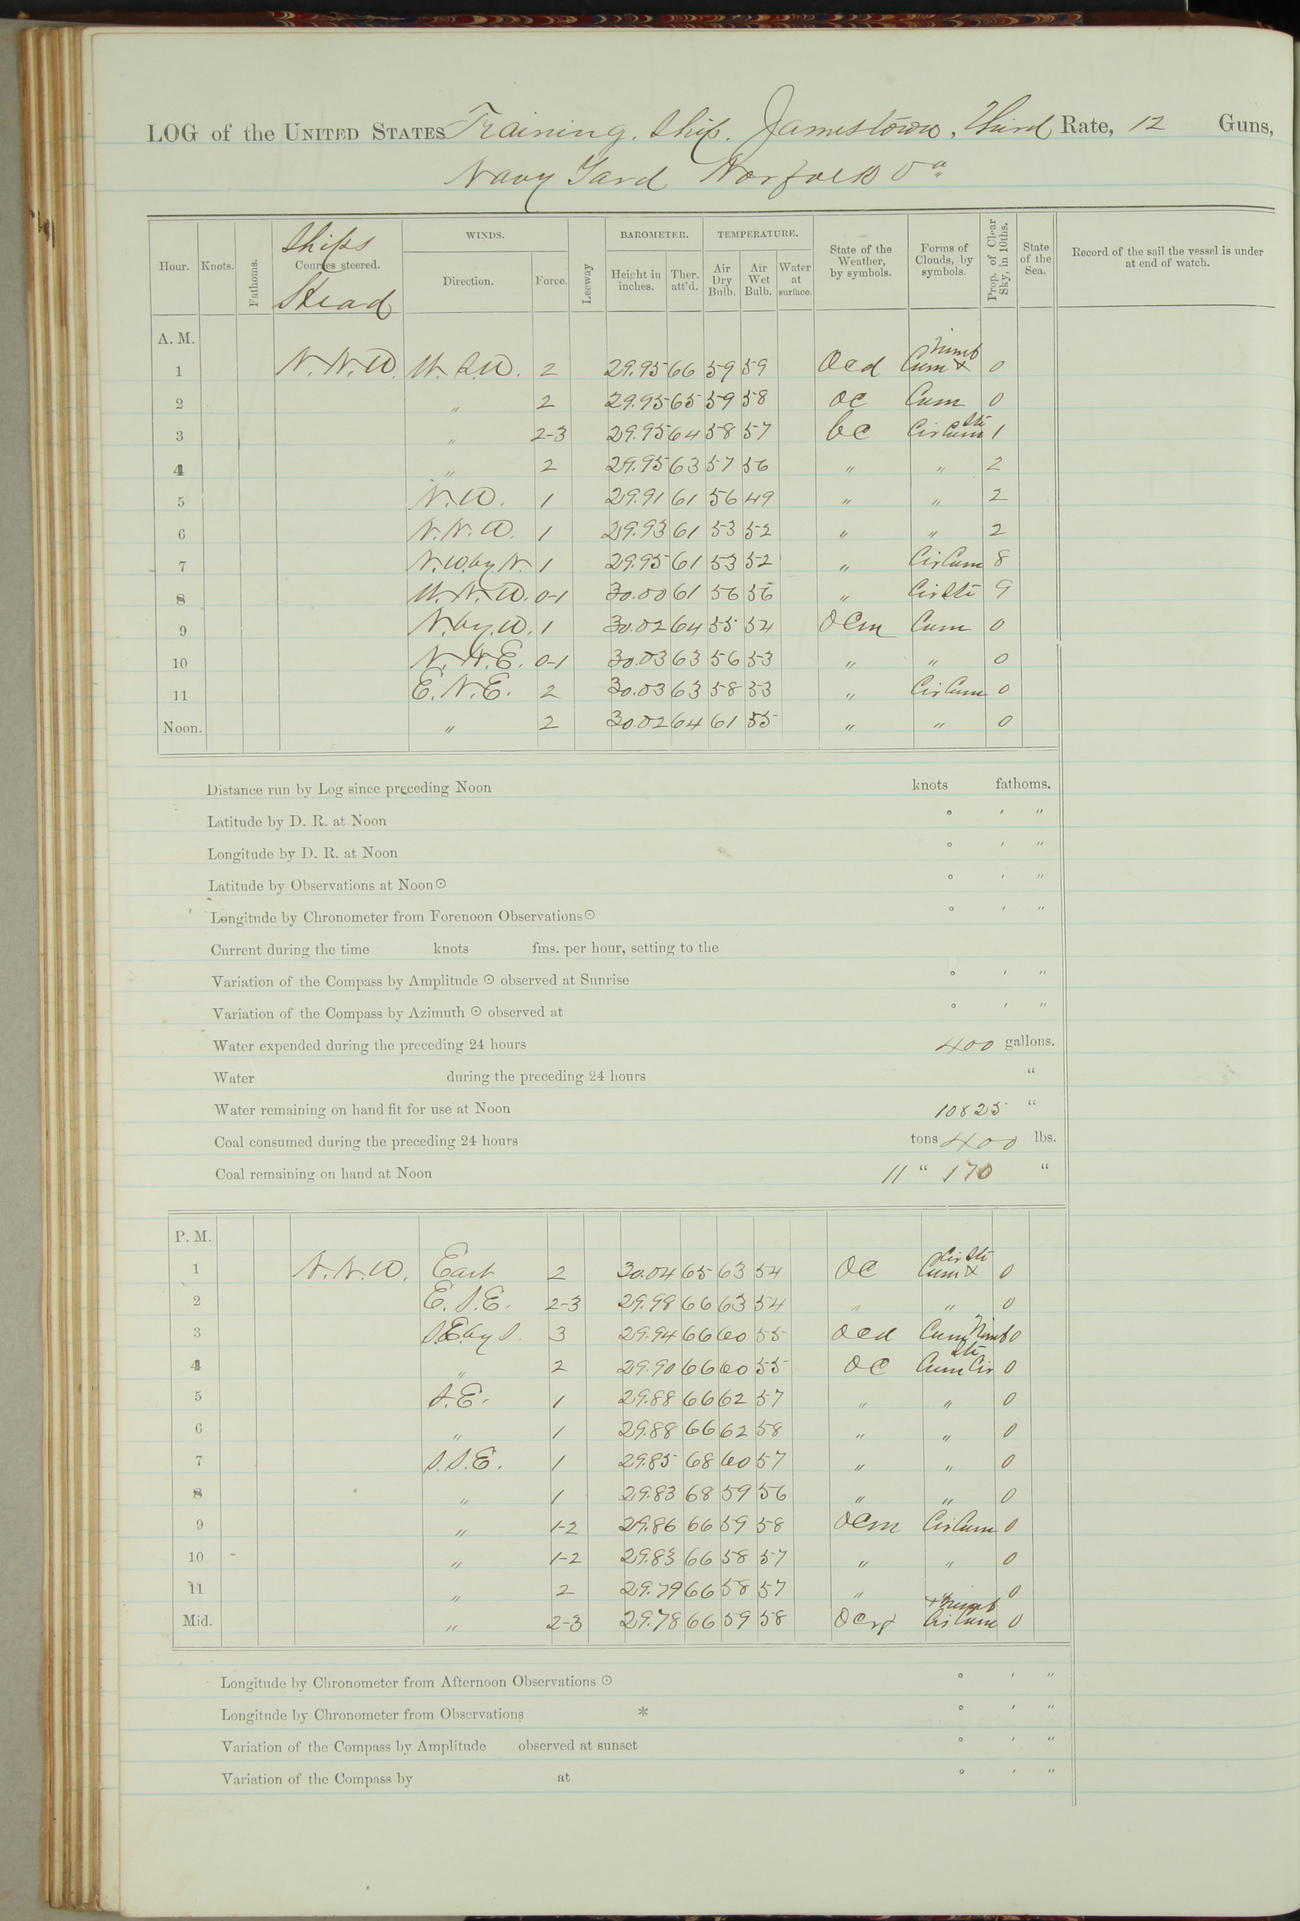 LOG of the UNITED STATES Training Ship Jamestown, Third Rate, 12 Guns,
Navy Yard Norfolk Va
Hour. Knots. Fathoms. Ships Courses steered. Head WINDS. Direction. Force. Leeway BAROMETER. Height in inches. Ther. att'd. TEMPERATURE. Air Dry Bulb. Air Wet Bulb. Water at surface. State of the Weather, by symbols. Forms of Clouds, by symbols. Prop. of Clear Sky, in 10ths. State of the Sea. Record of the sail the vessel is under at end of watch.
A. M.
1 N.N.W. W.S.W. 2 29.95 66 59 59 ocd Cum & Nimb 0
2 " 2 29.95 65 59 58 oc Cum 0
3 " 2-3 29.95 64 58 57 bc Cir Cum Str 1
4 " 2 29.95 63 57 56 " " 2
5 N.W. 1 29.91 61 56 49 " " 2
6 N.N.W. 1 29.93 61 53 52 " " 2
7 N.W.by N. 1 29.95 61 53 52 " Cir Cum 8
8 W.N.W. 0-1 30.00 61 56 56 " Cir Str 9
9 N.by.W. 1 30.02 64 55 54 ocm Cum 0
10 N.N.E. 0-1 30.03 63 56 53 " " 0
11 E.N.E. 2 30.03 63 58 53 " Cir Cum 0
Noon. " 2 30.02 64 61 55 " " 0
Distance run by Log since preceding Noon knots fathoms.
Latitude by D. R. at Noon ° ′ ″
Longitude by D. R. at Noon ° ′ ″
Latitude by Observations at Noon ☉ ° ′ ″
Longitude by Chronometer from Forenoon Observations ☉ ° ′ ″
Current during the time knots fms. per hour, setting to the
Variation of the Compass by Amplitude ☉ observed at Sunrise ° ′ ″
Variation of the Compass by Azimuth ☉ observed at ° ′ ″
Water expended during the preceding 24 hours 400 gallons.
Water during the preceding 24 hours "
Water remaining on hand fit for use at Noon 10825 "
Coal consumed during the preceding 24 hours tons 400 lbs.
Coal remaining on hand at Noon 11 " 170 "
P. M.
1 N.N.W. East 2 30.04 65 63 54 oc Cum & Cir Str 0
2 E.S.E. 2-3 29.98 66 63 54 " " 0
3 S.E.by S. 3 29.94 66 60 55 ocd Cum Nimb 0
4 " 2 29.90 66 60 55 oc Cum Cir Str 0
5 S.E. 1 29.88 66 62 57 " " 0
6 " 1 29.88 66 62 58 " " 0
7 S.S.E. 1 29.85 68 60 57 " " 0
8 " 1 29.83 68 59 56 " " 0
9 " 1-2 29.86 66 59 58 ocm Cir Cum 0
10 " 1-2 29.83 66 58 57 " " 0
11 " 2 29.79 66 58 57 " " 0
Mid. " 2-3 29.78 66 59 58 Cir Cum + Nimb 0
Longitude by Chronometer from Afternoon Observations ☉ ° ′ ″
Longitude by Chronometer from Observations * ° ′ ″
Variation of the Compass by Amplitude observed at sunset ° ′ ″
Variation of the Compass by at ° ′ ″